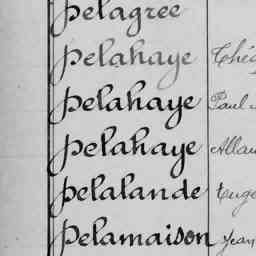 Delagrée
Delahaye
Delahaye Paul
Delahaye
Delalande
Delamaison Jean